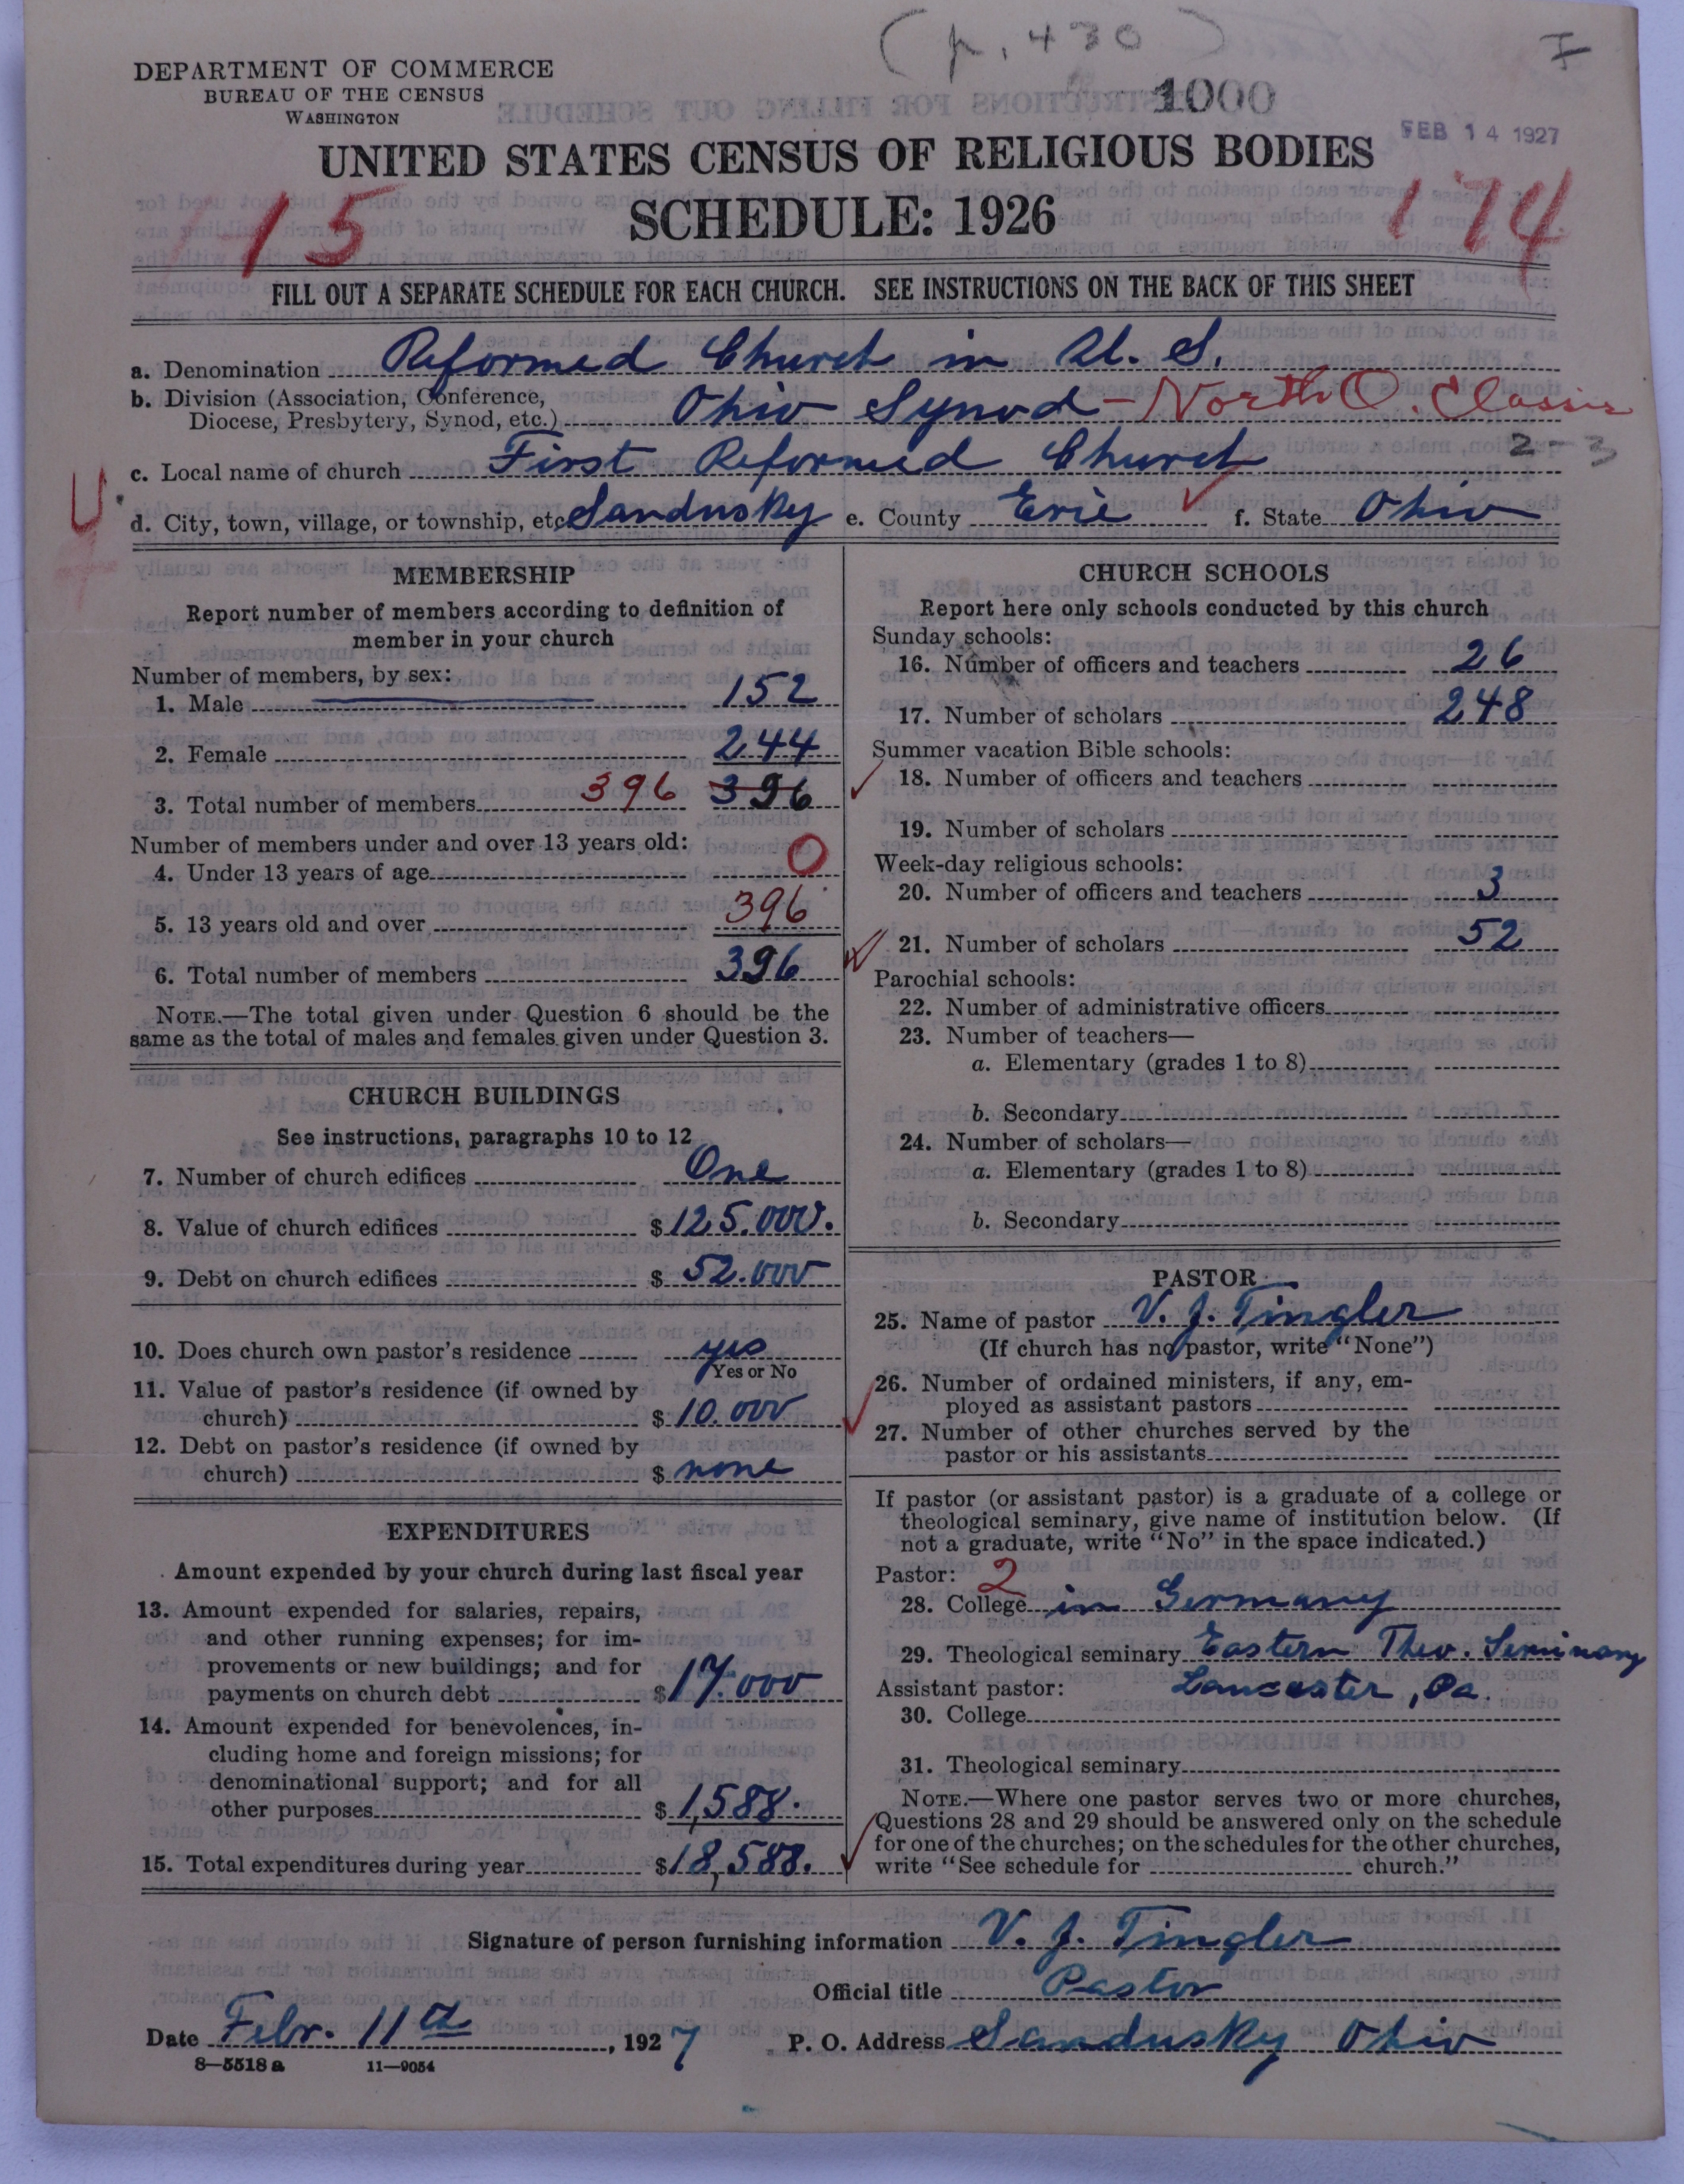 (p. 430)
I
DEPARTMENT OF COMMERCE
BUREAU OF THE CENSUS
WASHINGTON
1000
FEB 14 1927
UNITED STATES CENSUS OF RELIGIOUS BODIES
SCHEDULE: 1926
1-15
174
FILL OUT A SEPARATE SCHEDULE FOR EACH CHURCH. SEE INSTRUCTIONS ON THE BACK OF THIS SHEET
a. Denomination Reformed Church in U. S.
b. Division (Association, Conference,
Diocese, Presbytery, Synod, etc.) Ohio Synod - North O. Classis
2-3
c. Local name of church First Reformed Church
U
d. City, town, village, or township, etc. Sandusky e. County Erie f. State Ohio
MEMBERSHIP
Report number of members according to definition of
member in your church
Number of members, by sex:
1. Male 152
2. Female 244
3. Total number of members 396 396
Number of members under and over 13 years old:
4. Under 13 years of age 0
5. 13 years old and over 396
6. Total number of members 396
NOTE.—The total given under Question 6 should be the
same as the total of males and females given under Question 3.
CHURCH BUILDINGS
See instructions, paragraphs 10 to 12
7. Number of church edifices One
8. Value of church edifices $125.000.
9. Debt on church edifices $ 52.000
10. Does church own pastor's residence yes
Yes or No
11. Value of pastor's residence (if owned by
church) $ 10.000
12. Debt on pastor's residence (if owned by
church) $ none
EXPENDITURES
Amount expended by your church during last fiscal year
13. Amount expended for salaries, repairs,
and other running expenses; for im-
provements or new buildings; and for
payments on church debt $17.000
14. Amount expended for benevolences, in-
cluding home and foreign missions; for
denominational support; and for all
other purposes $1,588.
15. Total expenditures during year $18,588.
CHURCH SCHOOLS
Report here only schools conducted by this church
Sunday schools:
16. Number of officers and teachers 26
17. Number of scholars 248
Summer vacation Bible schools:
18. Number of officers and teachers
19. Number of scholars
Week-day religious schools:
20. Number of officers and teachers 3
21. Number of scholars 52
Parochial schools:
22. Number of administrative officers
23. Number of teachers—
a. Elementary (grades 1 to 8)
b. Secondary
24. Number of scholars—
a. Elementary (grades 1 to 8)
b. Secondary
PASTOR
25. Name of pastor V. J. Tingler
(If church has no pastor, write "None")
26. Number of ordained ministers, if any, em-
ployed as assistant pastors
27. Number of other churches served by the
pastor or his assistants
If pastor (or assistant pastor) is a graduate of a college or
theological seminary, give name of institution below. (If
not a graduate, write "No" in the space indicated.)
Pastor: 2
28. College in Germany
29. Theological seminary Eastern Theo. Seminary
Assistant pastor: Lancaster, Pa.
30. College
31. Theological seminary
NOTE.—Where one pastor serves two or more churches,
Questions 28 and 29 should be answered only on the schedule
for one of the churches; on the schedules for the other churches,
write "See schedule for church."
Signature of person furnishing information V. J. Tingler
Official title Pastor
Date Febr. 11th, 1927 P. O. Address Sandusky Ohio
8—5518 a 11—9054